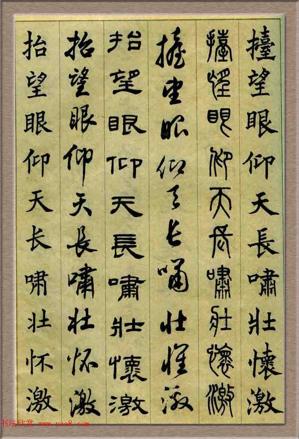 擡望眼仰天長嘯壯懷激
擡望眼仰天長嘯壯懷激
擡望眼仰天長嘯壮怀激
抬望眼仰天長嘯壯懷激
抬望眼仰天長嘯壮怀激
抬望眼仰天长啸壮怀激